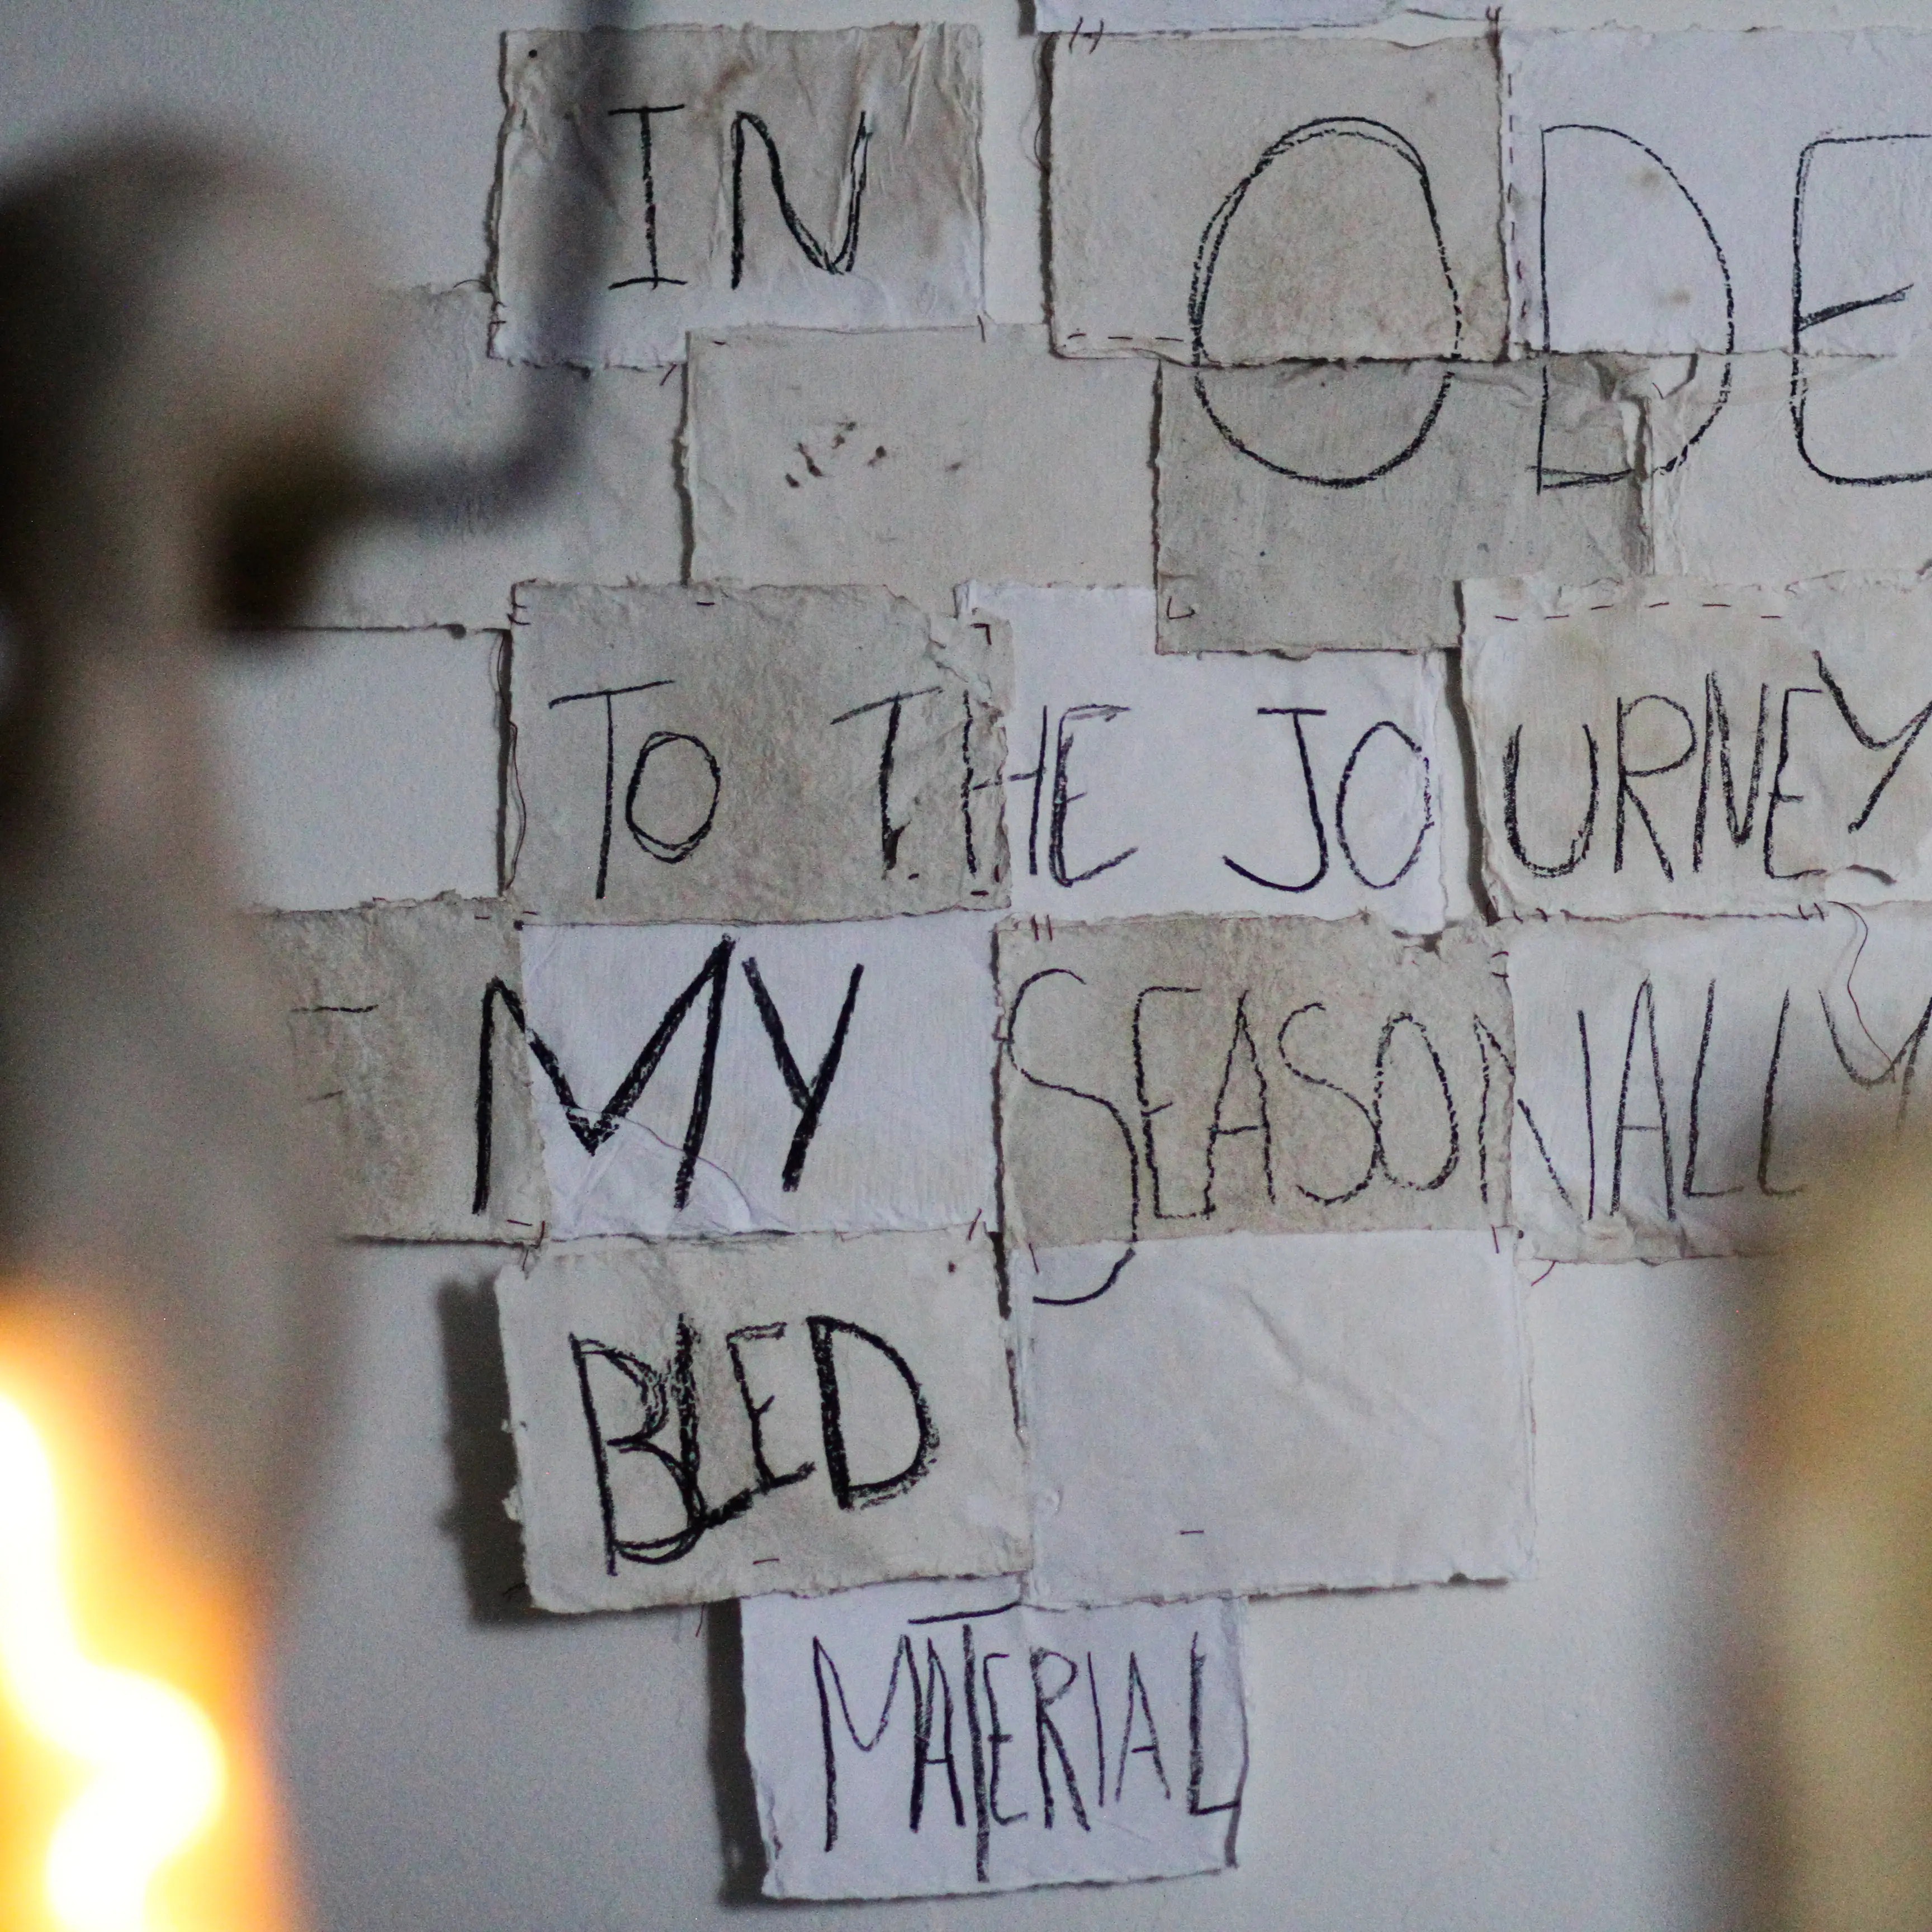 IN ODE
TO THE JOURNEY
MY SEASONALLY
BLED
MATERIAL